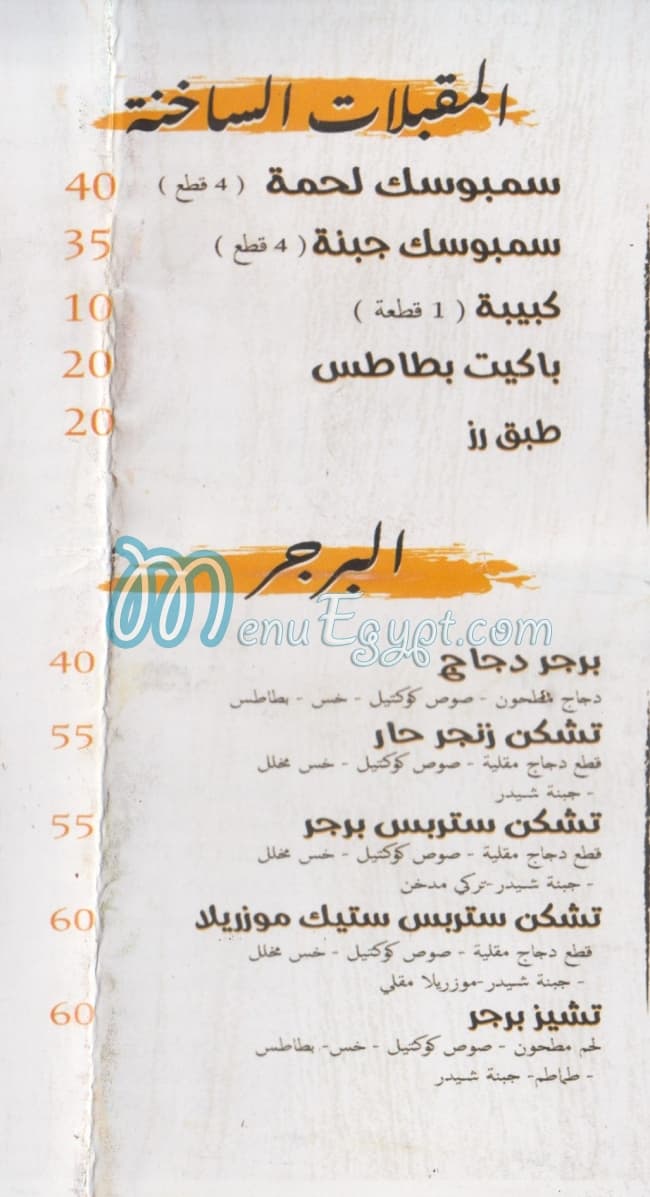 المقبلات الساخنة
سمبوسك لحمة ( 4 قطع ) 40
سمبوسك جبنة ( 4 قطع ) 35
كبيبة ( 1 قطعة ) 10
باكيت بطاطس 20
طبق رز 20
البرجر
MenuEgypt.com
برجر دجاج 40
دجاج مطحون - صوص كوكتيل - خس - بطاطس
تشكن زنجر حار 55
قطع دجاج مقلية - صوص كوكتيل - خس مخلل
- جبنة شيدر
تشكن ستربس برجر 55
قطع دجاج مقلية - صوص كوكتيل - خس مخلل
- جبنة شيدر-تركي مدخن
تشكن ستربس ستيك موزريلا 60
قطع دجاج مقلية - صوص كوكتيل - خس مخلل
- جبنة شيدر-موزريلا مقلي
تشيز برجر 60
لحم مطحون - صوص كوكتيل - خس- بطاطس
- طماطم- جبنة شيدر